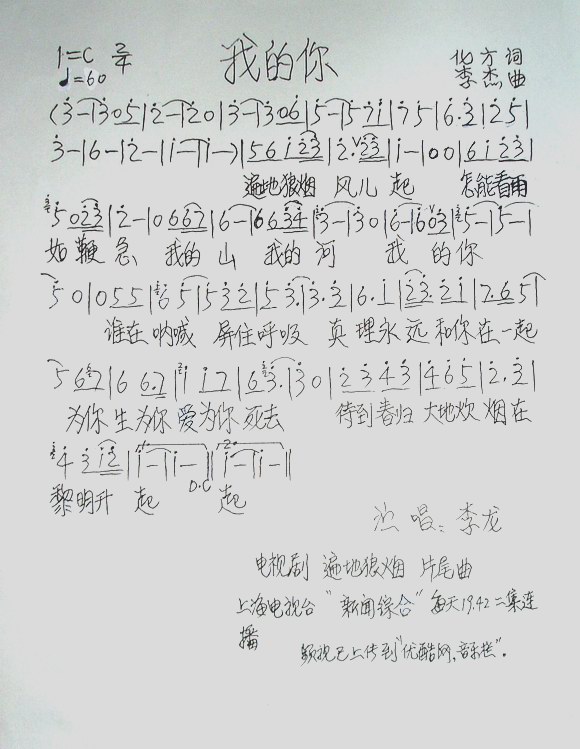 1=C 2/4
♩=60
我的你
化方词
李杰曲
(3-|305|2-|20|3-|306|5-|571|75|6·3|25|
3-|6-|2-|1-|1-)|56123|2·23|1-|00|6123|
遍地狼烟 风儿 起 怎能看雨
5023|2-|0667|6-|6634|3-|30|6-|603|5-|5-|
如鞭急 我的 山 我的 河 我 的你
50|055|65|532|53·|3·3|6·1|23·21|7·65|
谁在呐喊 屏住呼吸 真理永远和你在一起
567|6 67|117|63·|30|2343|465|2·3|
为你生为你爱为你死去 待到春归大地炊烟在
4 312|1-|1-|1-|1-||
黎明升 起 D.C 起
演唱:李龙
电视剧 遍地狼烟 片尾曲
上海电视台"新闻综合"每天19.42二集连
播
频视已上传到"优酷网,音乐栏".